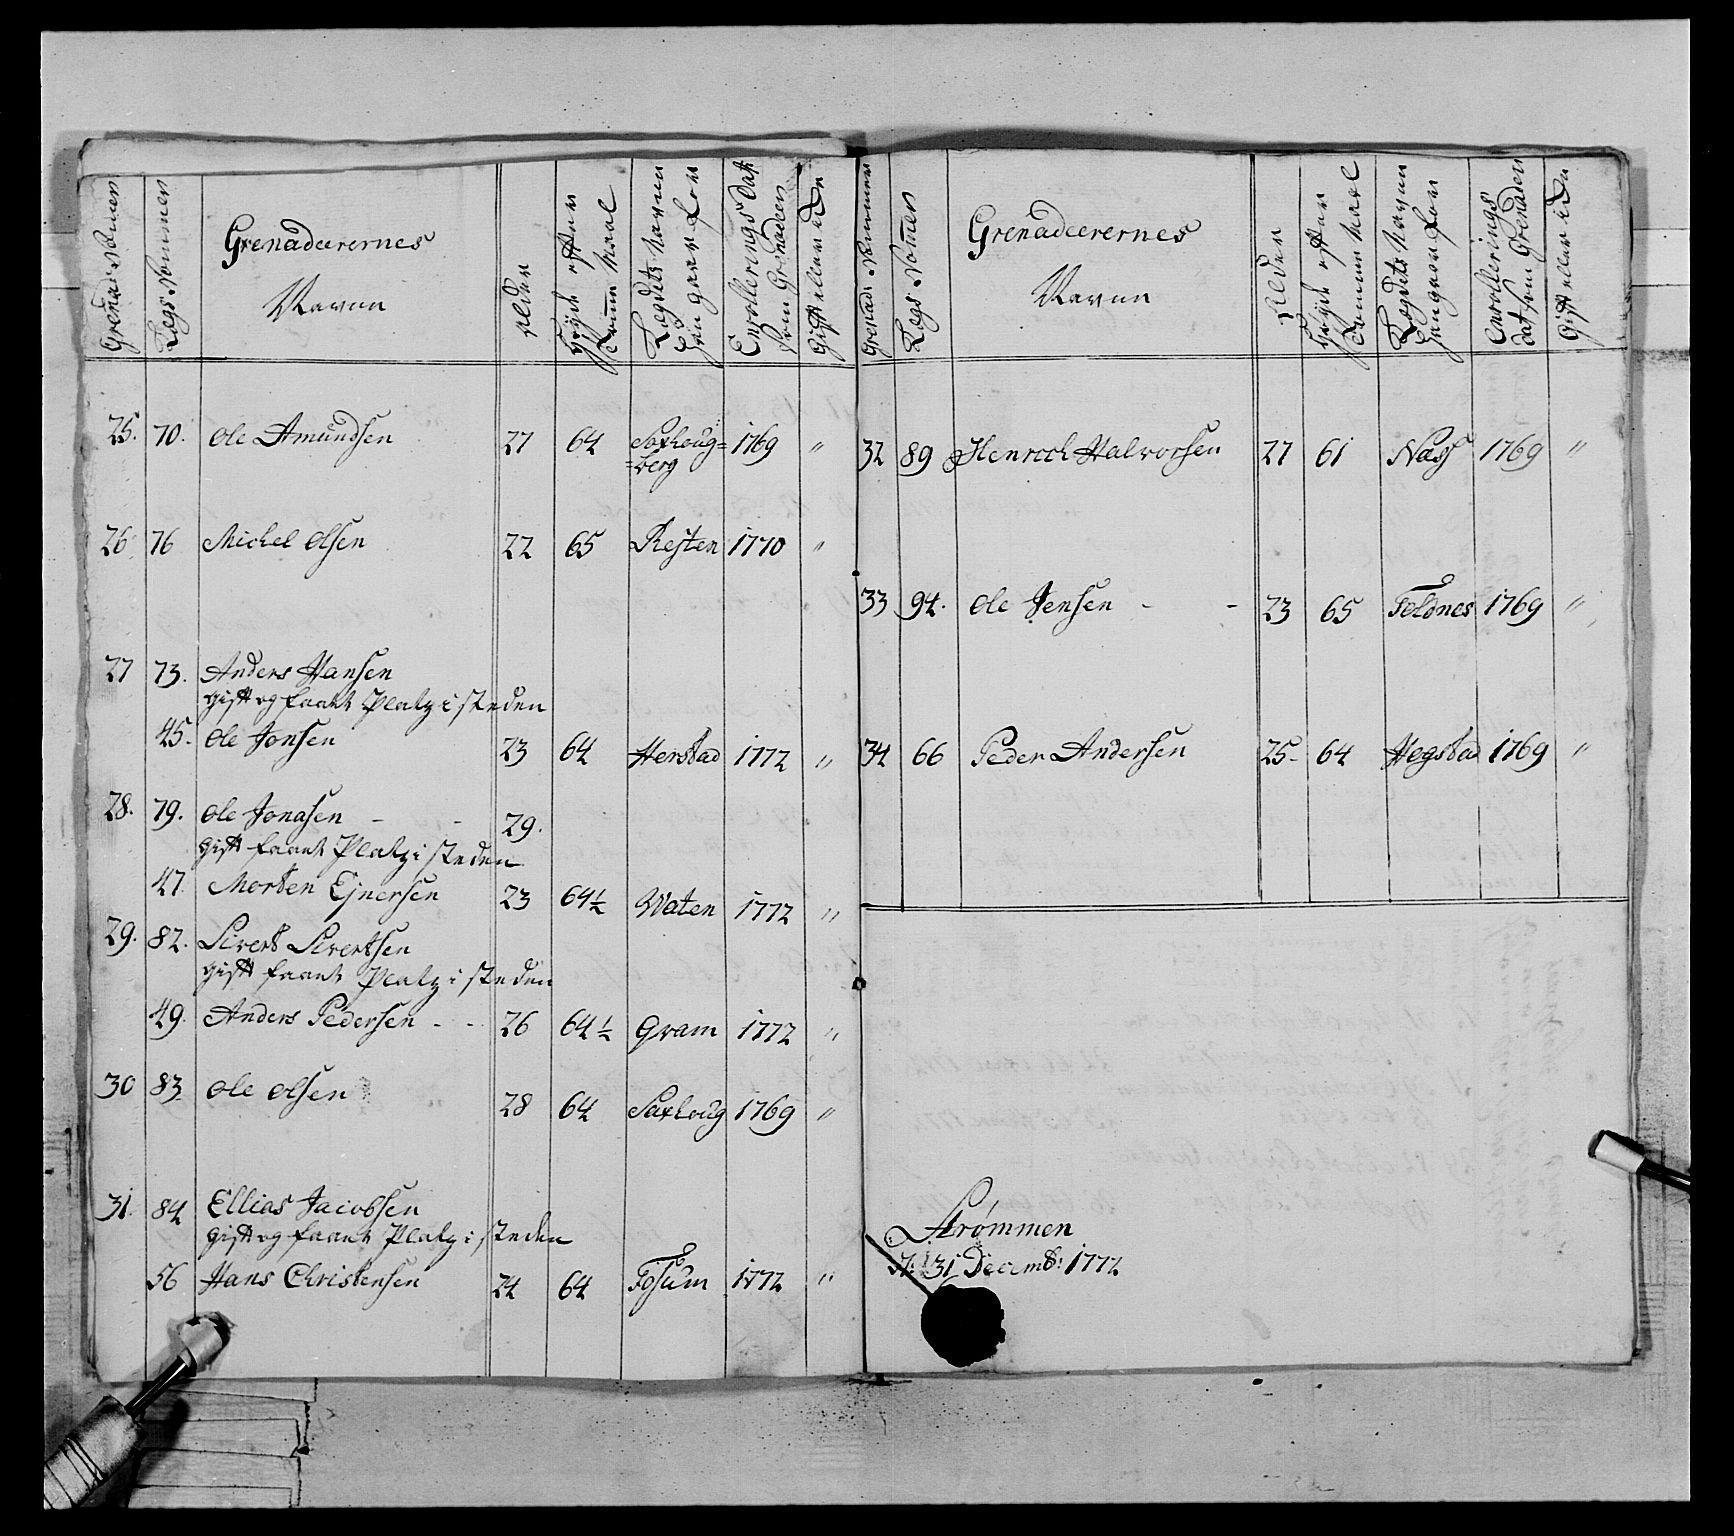 Grenad: Nommer
Lægs Nommer
Grenadeerernes
Navne
Alder
Høyde efter
Tomme Maal
Lægdets Navne
Han gaaer for
Enrollerings Dat:
som Grenadeer
Gift eller ide
25. 70. Ole Amundsen 27 64 Saxhoug= 1769 "
=berg
26 76 Michel Olsen 22 65 Resten 1770 "
27 73. Anders Hansen
Gift og faaet Platz i steden
45. Ole Jonsen 23 64 Herstad 1772 "
28. 79. Ole Jonasen - - 29.
Gift faaet Platz i steden
47. Morten Ejnersen 23 64½ Waten 1772 "
29. 82. Sivert Sivertsen
Gift faaet Platz i steden
49. Anders Pedersen - - 26 64½ Gram 1772 "
30 83 Ole Olsen 28 64 Saxhoug 1769 "
31. 84 Ellias Jacobsen
Gift og faaet Platz i steden
56 Hans Christensen 24 64 Fosum 1772 "
Grenad: Nommer
Lægs Nommer
Grenadeerernes
Navne
Alder
Høyde efter
Tomme Maal
Lægdets Navne
Han gaaer for
Enrollerings
Dat som Grenadeer
Gift eller ide
32 89 Henrich Halvorsen 27 61 Næss 1769 "
33 94. Ole Jensen - - 23 65 Foldnes 1769 "
34 66 Peder Andersen 25- 64 Hegstad 1769 "
Strømmen
31 Decemb: 1772